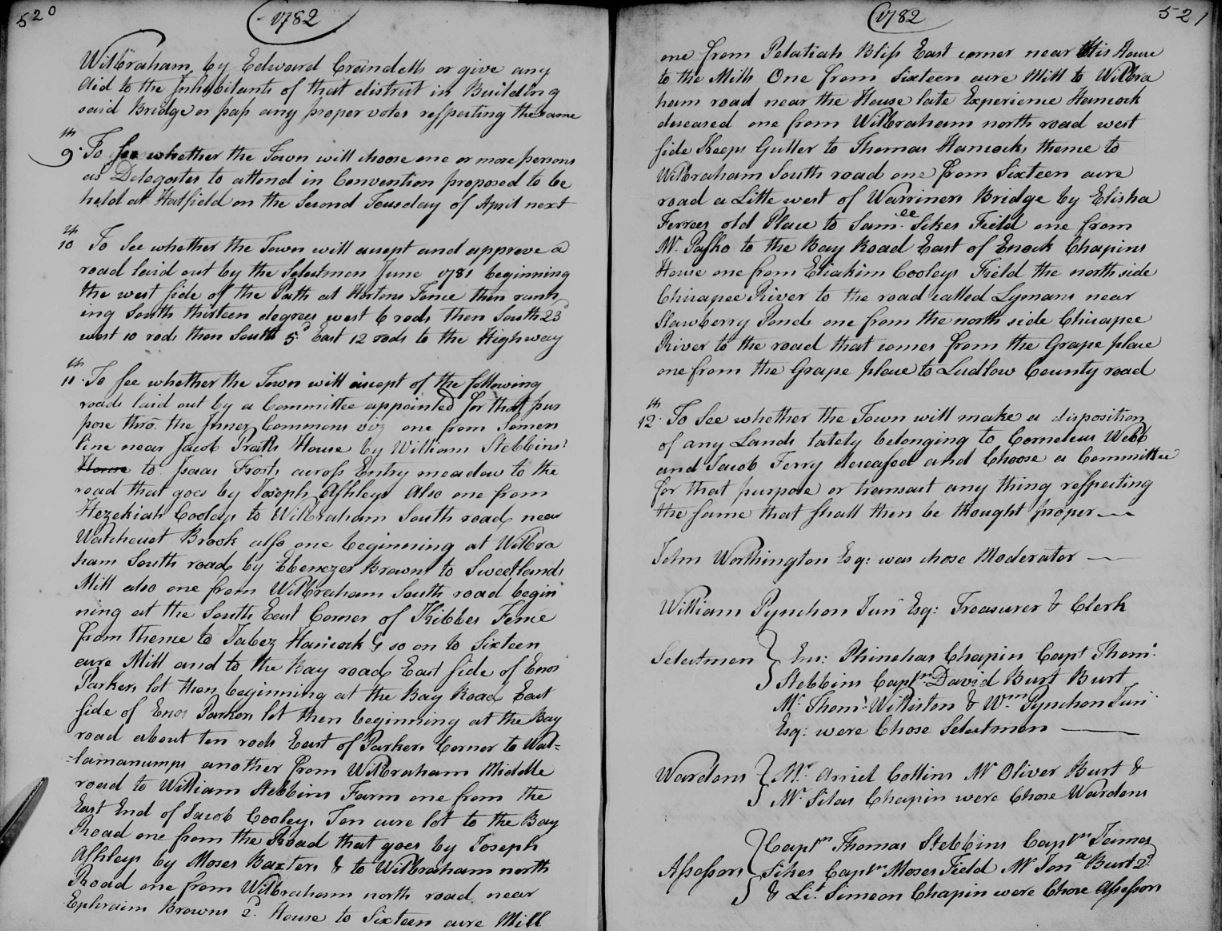 520
1782
Wilbraham, by Edward Crandells or give any
Aid to the Inhabitants of that district in Building
said Bridge or pass any proper votes respecting the same
9th To See whether the Town will choose one or more persons
as Delegates to attend in Convention proposed to be
held at Hatfield on the Second Teusday of April next
10th To See whether the Town will accept and approve a
road laid out by the Selectmen June 1781 beginning
the west side of the Path at Hortons Fence then runn
ing South thirteen degrees west 6 rods then South 23d
west 10 rods then South 5d East 12 rods to the Highway
11th To See whether the Town will accept of the following
roads laid out by a Committee appointed for that pur
pose thro. the Inner Commons viz one from Somers
line near Jacob Praths House by William Stebbins'
House to Isaac Frosts across Entry meadow to the
road that goes by Joseph Ashleys Also one from
Hezekiah Cooleys to Wilbraham South road near
Watcheuet Brook also one beginning at Wilbra
ham South road, by Ebenezer Browns to Sweetlands
Mill also one from Wilbraham South road begin
ning at the South East Corner of Kibbes Fence
from thence to Jabez Hancock's so on to Sixteen
acre Mill and to the Bay road, East side of Enos
Parkers lot then beginning at the Bay Road East
side of Enos Parkers lot then beginning at the Bay
road about ten rods East of Parkers Corner to Wal=
=lamanumps another from Wilbraham Middle
road to William Stebbins Farm one from the
East End of Jacob Cooleys Ten acre lot to the Bay
Road one from the Road that goes by Joseph
Ashleys by Moses Baxters & to Wilbraham north
Road one from Wilbraham north road near
Ephraim Browns 2d House to Sixteen acre Mill
1782
521
one from Pelatiah Bliss East corner near His House
to the Mills One from Sixteen acre Mill to Wilbra
ham road near the House late Experience Hancock
deceased one from Wilbraham north road west
side Keeps Gutter to Thomas Hancocks thence to
Wilbraham South road one from Sixteen acre
road a Litte west of Warriners Bridge by Elisha
Ferrees old Place to Samll Sikes Field one from
Mr Pasko to the Bay Road East of Enock Chapins
House one from Eliakim Cooleys Field the north side
Chicapee River to the road called Lymans near
Strawberry Ponds one from the north side Chicapee
River to the road that comes from the Grape place
one from the Grape place to Ludlow County road
12th To See whether the Town will make a disposition
of any Lands lately belonging to Cornelius Webb
and Jacob Ferry deceased and Choose a Committee
for that purpose or transact any thing respecting
the same that shall then be thought proper
John Worthington Esq: was chose Moderator
William Pynchon Jun Esq: Treasurer & Clerk
Selectmen Ens: Phinehas Chapin Capt Thom:
Stebbins Captn David Burt Burt
Mr Thoms Williston & Wm Pynchon Jun
Esq: were Chose Selectmen
Wardens Mr Ariel Collins Mr Oliver Burt &
Mr Silas Chapin were Chose Wardens
Assessors Captn Thomas Stebbins Captn James
Sikes Captn Moses Field Mr Jona Burt 2d
& Lit. Simeon Chapin were Chose Assessors